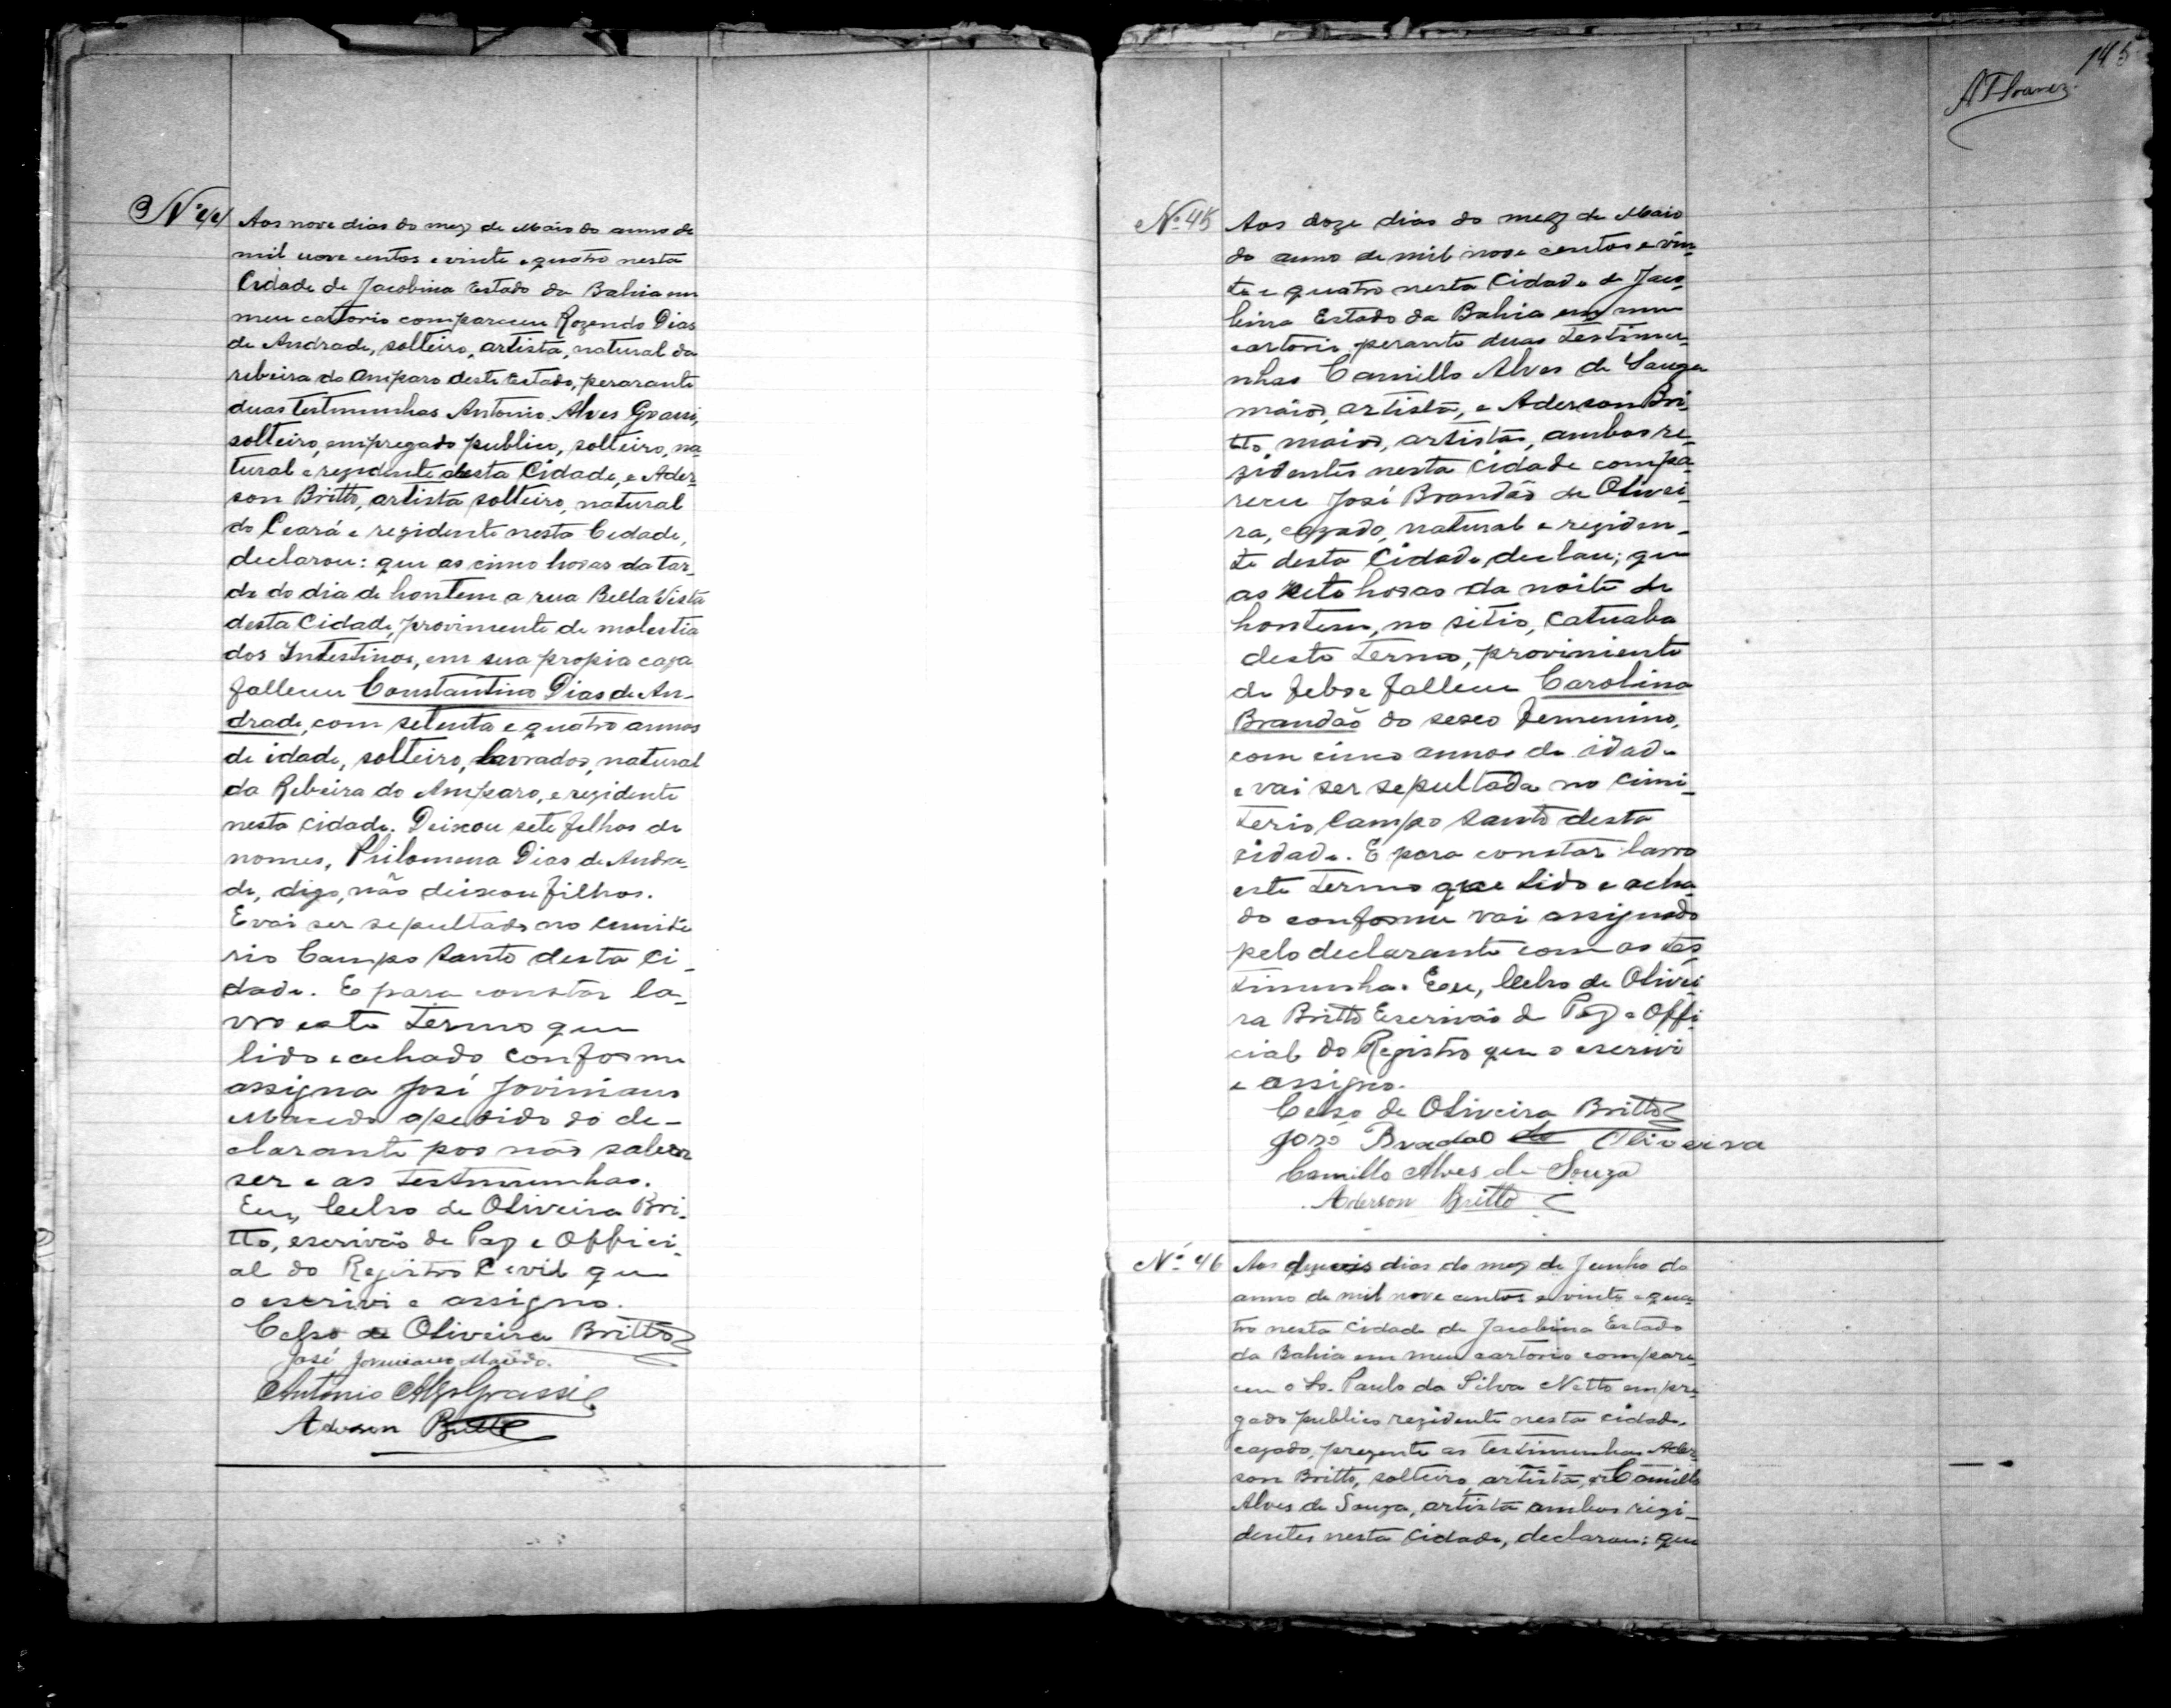 Nº 44
Aos nove dias do mez de Maio do anno de
mil nove centos e vinte e quatro nesta
Cidade de Jacobina Estado da Bahia em
meu cartorio compareceu Rozendo Dias
de Andrade, solteiro, artista, natural da
rebeira do Amparo deste Estado, perarante
duas testmunhas Antonio Alves Grassi,
solteiro, empregado publico, solteiro, na-
tural e rezidente desta Cidade, e Ader-
son Britto, artista solteiro, natural
do Ceará e rezidente nesta Cedade,
declarou: que as cinco horas da tar-
de do dia de hontem a rua Bella Vista
desta Cidade, provimente de molestia
dos Intestinos, em sua propia caza
falleceu Constantino Dias de An-
drade, com setenta e quatro annos
de idade, solteiro, lavrador, natural
da Rebeira do Amparo, e rezidente
nesta cidade. Deixou sete filhos de
nomes, Philomena Dias de Andra-
de, digo, não deixou filhos.
E vai ser sepultado no cemite
rio Campo Santo desta Ci-
dade. E para constar la-
vro este termo que
lido e achado conforme
assigna José Joviniano
Macedo a pedido do de-
clarante por não saber
ser e as testmunhas.
Eu, Celso de Oliveira Bri-
tto, escrivão de Paz e Offici-
al do Registro Cevil que
o escrivi e assigno.
Celso de Oliveira Britto
José Joviniano Macêdo.
Antonio Alves Grassi
Aderson Britto
145
Nº 45
Aos doze dias do mez de Maio
do anno de mil nove centos e vin-
te e quatro nesta Cidade de Jaco-
bina Estado da Bahia em meu
cartorio, perante duas testimu-
nhas Camillo Alves de Souza
maior, artista, e Aderson Bri-
tto, maior, artista, ambos re-
zidentes nesta cidade compa-
receu José Brandão de Olivei-
ra, cazado, natural e reziden-
te desta Cidade, declau; que
as sete horas da noite de
hontem, no sitio, Catuaba
deste termo, proviniente
de febre falleceu Carolina
Brandão do sexo femenino,
com cinco annos de idade
e vai ser sepultada no cimi-
terio Campo Santo desta
cidade. E para constar lavro
este termo que lido e acha-
do conforme vai assignado
pelo declarante com as tes-
timunha. Eu, Celso de Olivei
ra Britto Escrivão de Paz e Offi-
cial do Registro que o escrivi
e assigno.
Celso de Oliveira Britto
José Bradão de Oliveira
Camillo Alves de Souza
Aderson Britto
Nº 46
Aos dias do mez de Junho do
anno de mil nove centos e vinte e qua-
tro nesta Cidade de Jacobina Estado
da Bahia em meu cartorio compare-
ceu o Sr. Paulo da Silva Netto empre-
gado publico rezidente nesta cidade,
cazado, prezente as testimunhas Ader-
son Britto, solteiro, artista, e Camillo
Alves de Souza, artista ambos rizi-
dentes nesta Cidade, declarou: que